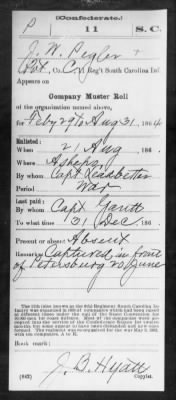 (Confederate.)
P 11 S. C.
J. W. Pegler
Pvt, Co. C, 11 Reg't South Carolina Inf
Appears on
Company Muster Roll
of the organization named above,
for Feby 29 to Aug 31, 1864
Enlisted:
When 21 Aug, 186
Where Ashepo
By whom Capt
Period War
Last paid:
By whom Capt
To what time 31 Dec, 186
Present or absent Absent
Remarks: Captured in front
of Petersburg 20 June
Book mark:
J. B. Hyatt
(642) Copyist.